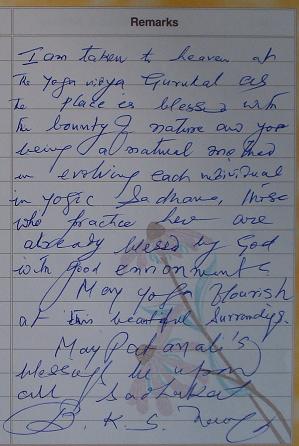 Remarks
I am taken to heaven at
The Yoga vidya Gurukul as
the place is blessed with
the bounty of nature and yoga
being a natural method
in evolving each individual
in yogic Sadhana, those
who practice here are
already blessed by God
with good environment.
May yoga flourish
at this beautiful Surrondings.
May Patanjali's
blessings be upon
all Sadhakas
B. K. S.